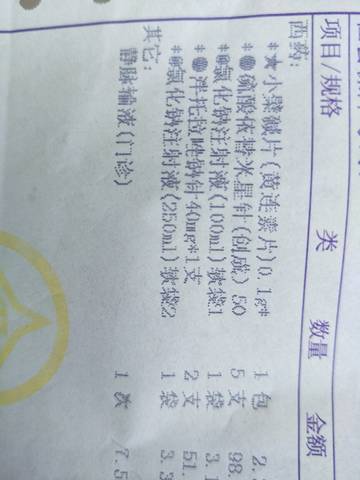 项目/规格 类 数量 金额
西药:
*★小檗碱片(黄连素片)0.1g* 1 包 2.
*⊕硫酸依替米星针(创成) 50 5 支 98.
*⊕氯化钠注射液(100ml)软袋1 1 袋 3.
*●泮托拉唑钠针40mg*1支 2 支 51.
*⊕氯化钠注射液(250ml)软袋2 1 袋 3.
其它:
静脉输液(门诊) 1 次 7.5